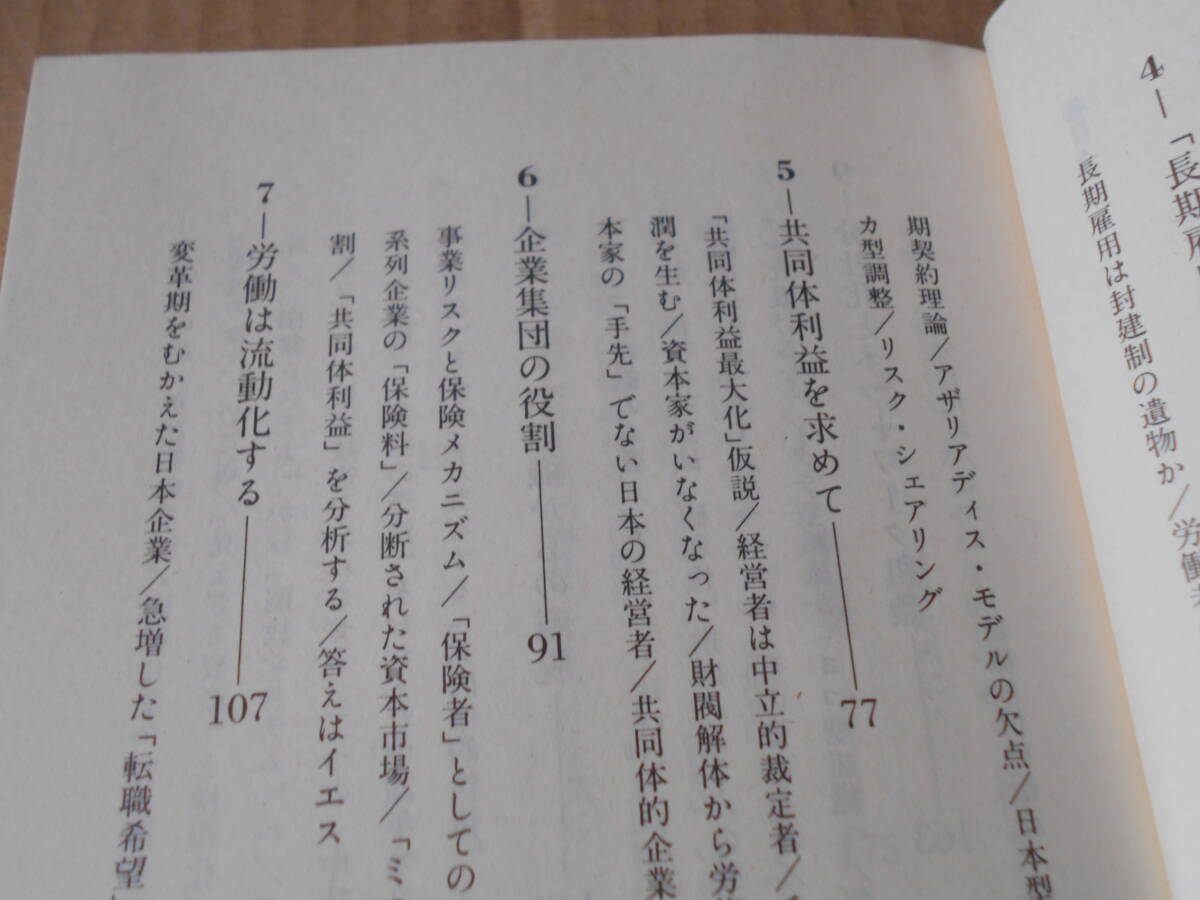 4—「長期雇
長期雇用は封建制の遺物か/労働者
期契約理論/アザリアディス・モデルの欠点/日本型
カ型調整/リスク・シェアリング
5—共同体利益を求めて——77
「共同体利益最大化」仮説/経営者は中立的裁定者/
潤を生む/資本家がいなくなった/財閥解体から労
本家の「手先」でない日本の経営者/共同体的企業
6—企業集団の役割——91
事業リスクと保険メカニズム/「保険者」としての
系列企業の「保険料」/分断された資本市場/「ミ
割/「共同体利益」を分析する/答えはイエス
7—労働は流動化する——107
変革期をむかえた日本企業/急増した「転職希望」